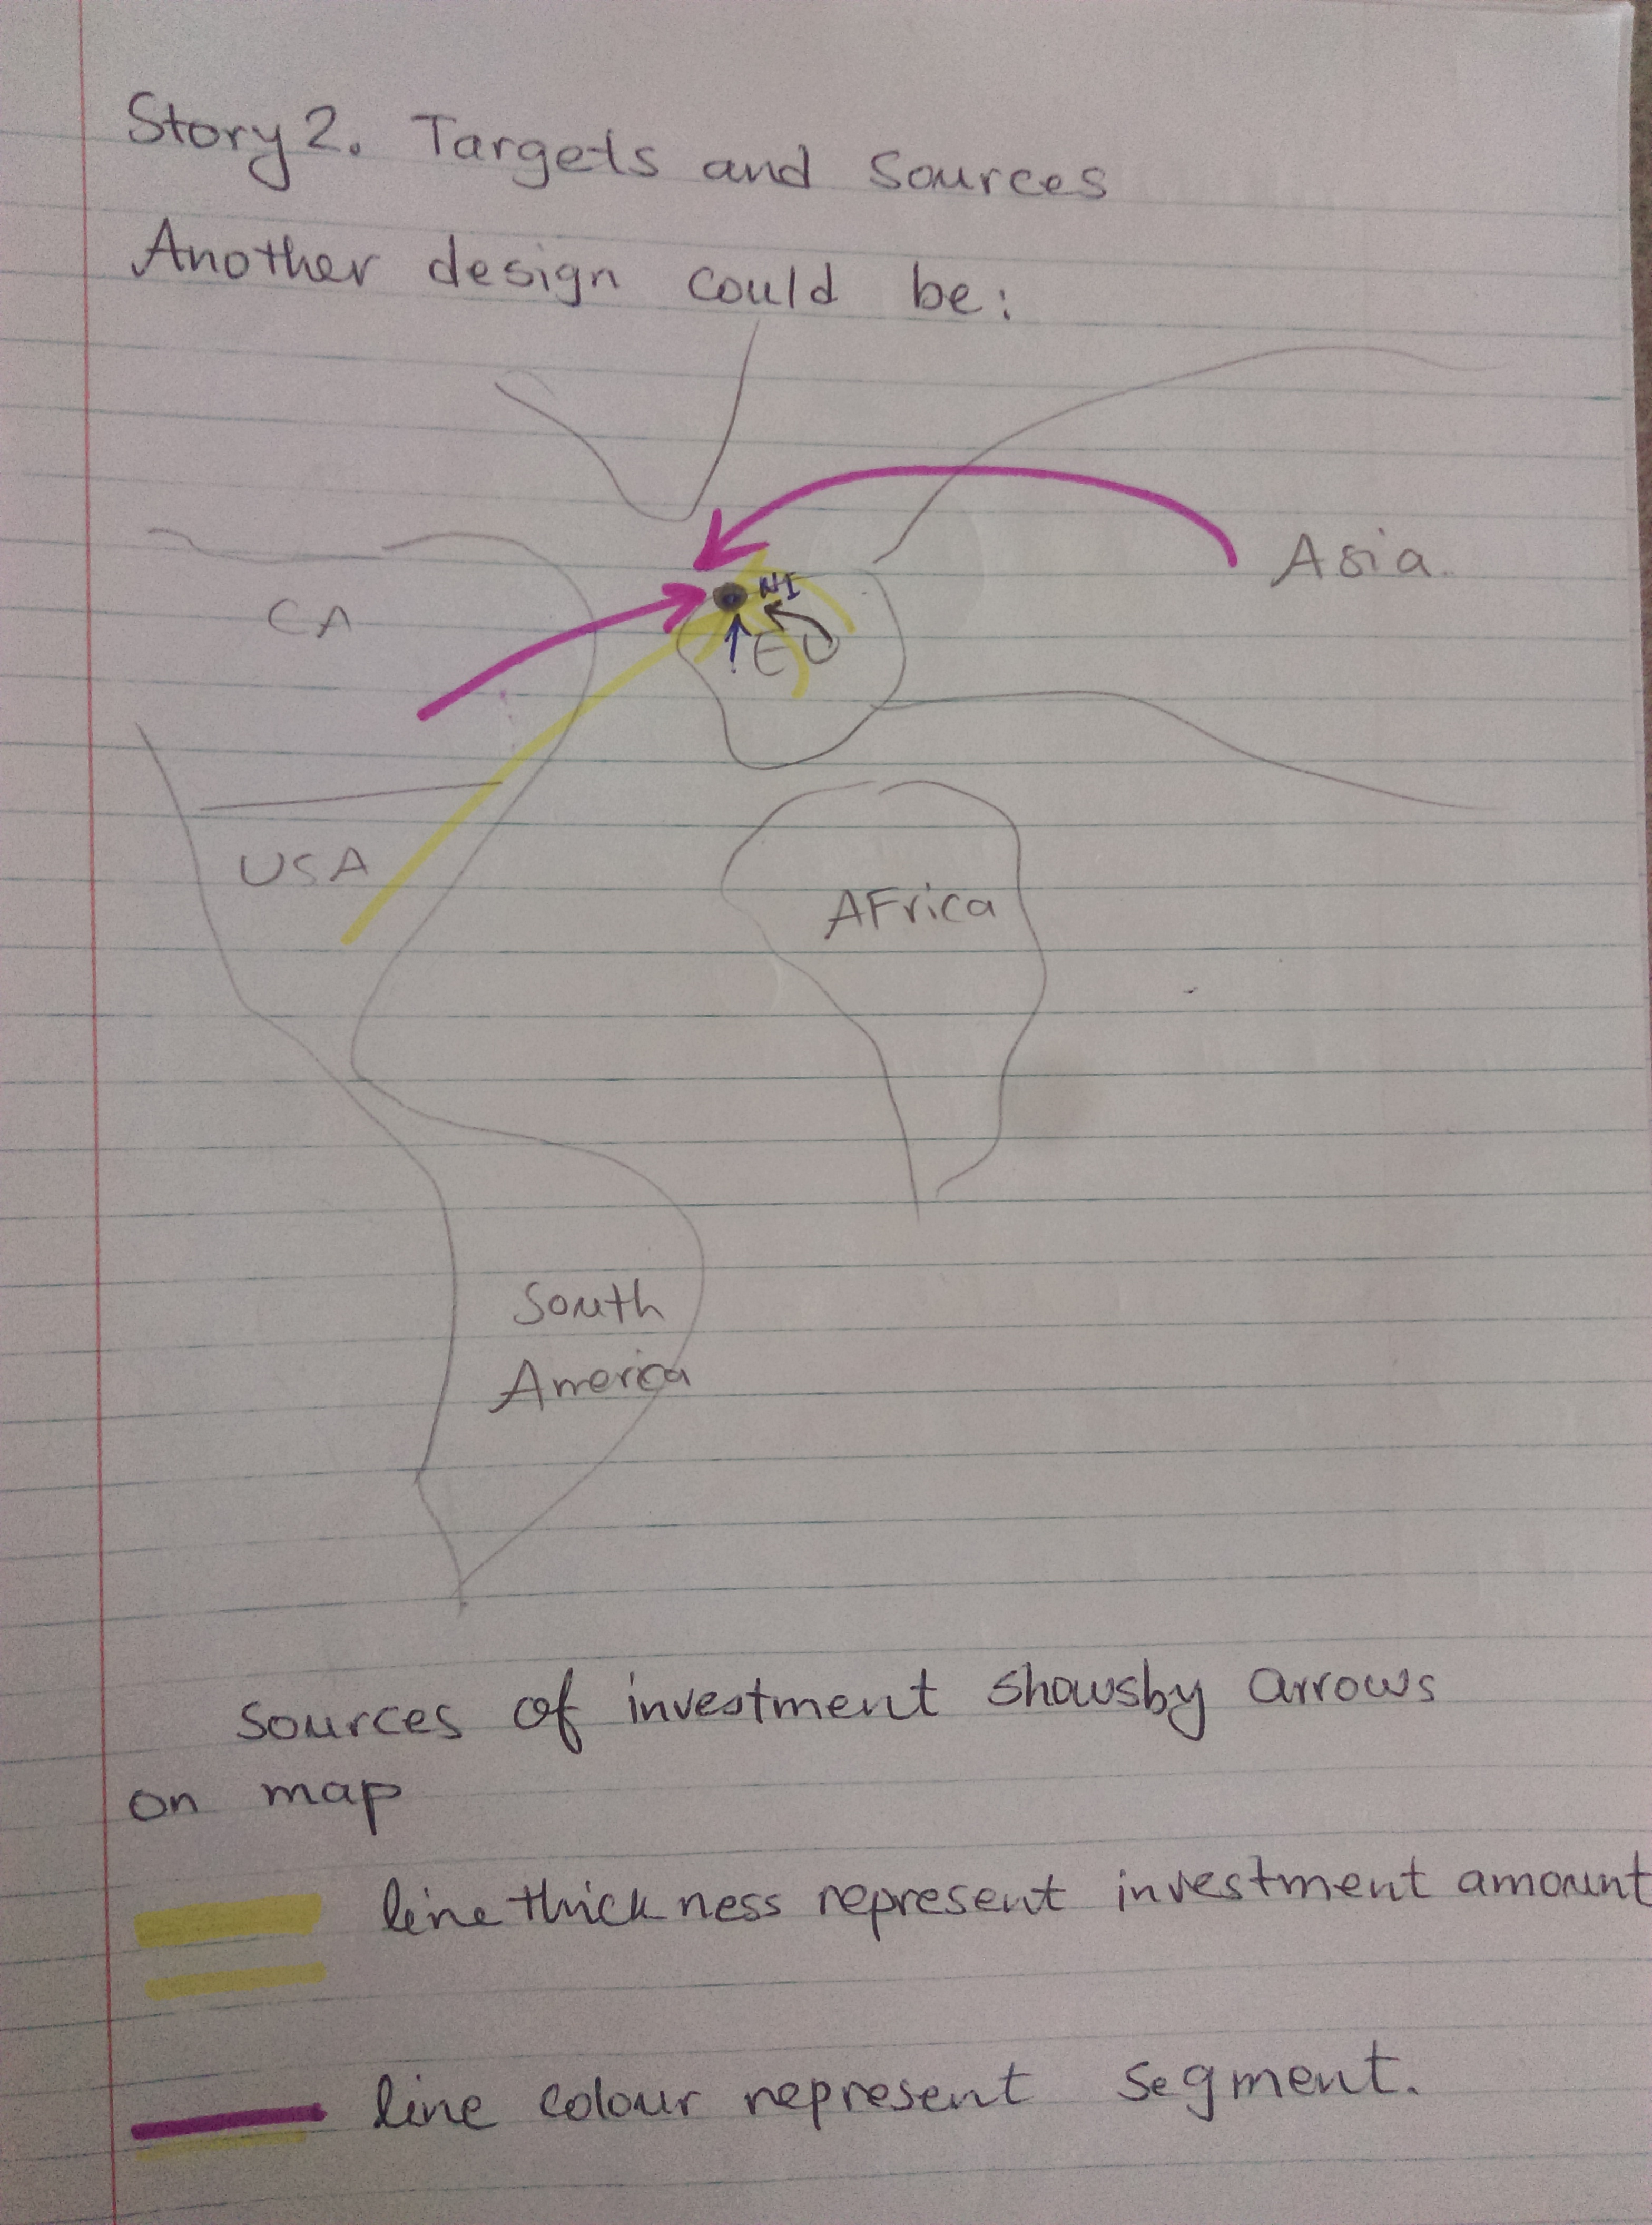 Story 2. Targets and Sources
Another design could be:
Asia
NI
CA
EU
USA
AFrica
South
America
Sources of investment showsby arrows
on map
line thickness represent investment amount
line colour represent segment.